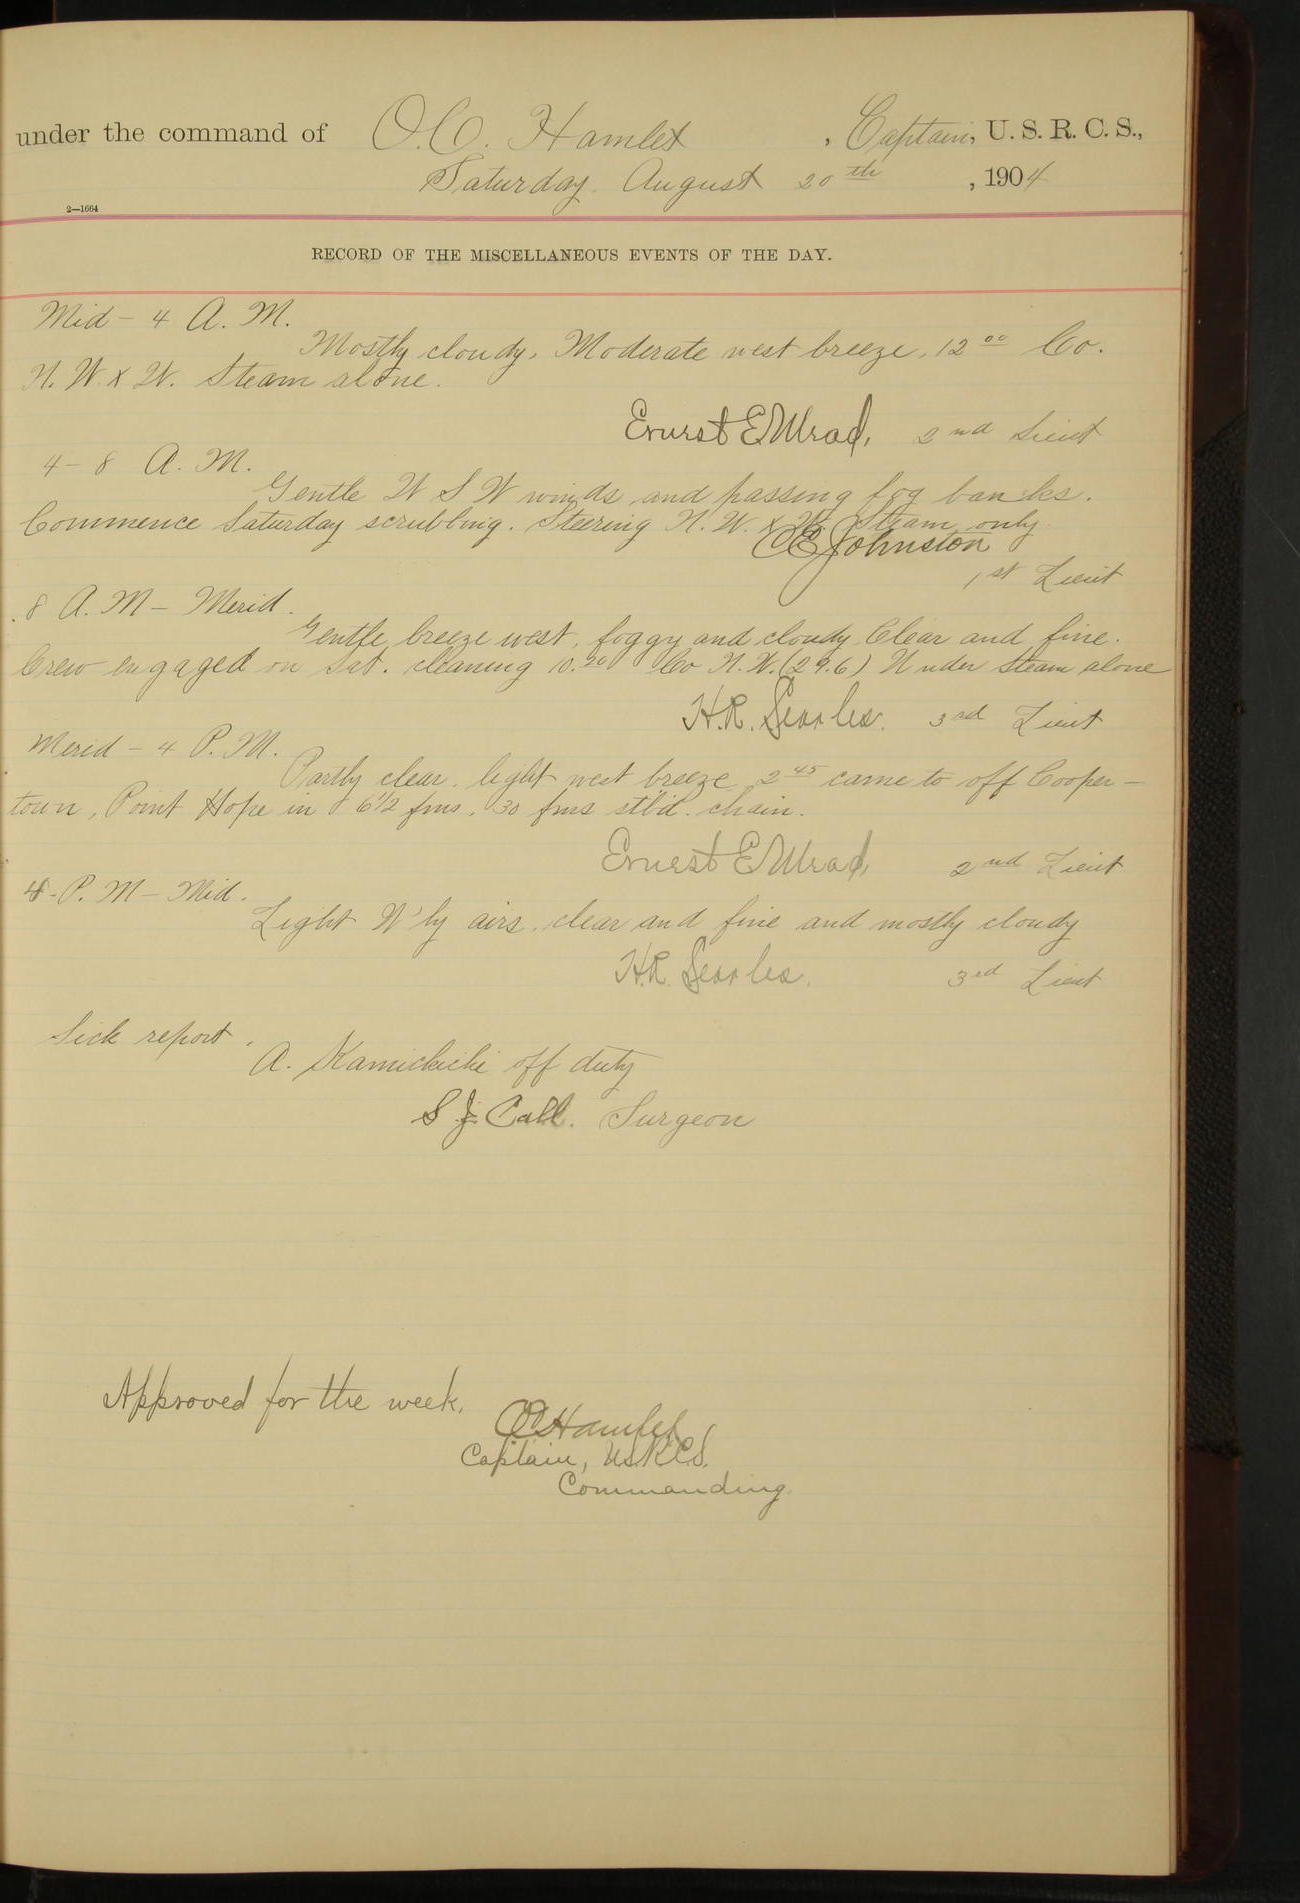 under the command of O.C. Hamlet, Captain, U. S. R. C. S.,
Saturday August 20th, 1904
2—1664
RECORD OF THE MISCELLANEOUS EVENTS OF THE DAY.
Mid - 4 A. M.
Mostly cloudy. Moderate west breeze. 12 00 Co.
N. W. x W. Steam alone.
Ernest E Mead, 2nd Lieut
4 - 8 A. M.
Gentle W S W winds and passing fog banks.
Commence Saturday scrubbing. Steering N. W. x W. Steam only
CE Johnston
1st Lieut
8 A. M - Merid.
Gentle breeze west, foggy and cloudy Clear and fine.
Crew engaged on Sat. cleaning 10.20 Co N.W. (29.6) Under steam alone
H.R. Searles. 3rd Lieut
Merid - 4 P. M.
Partly clear, light west breeze 2 45 came to off Cooper-
town, Point Hope in 6 1/2 fms. 30 fms stb'd. chain.
Ernest E Mead, 2nd Lieut
4 - P. M - Mid.
Light N'ly airs, clear and fine and mostly cloudy
H.R. Searles. 3rd Lieut
Sick report.
A. off duty
S J Call. Surgeon
Approved for the week.
OC Hamlet
Captain, U.S.R.C.S.
Commanding.